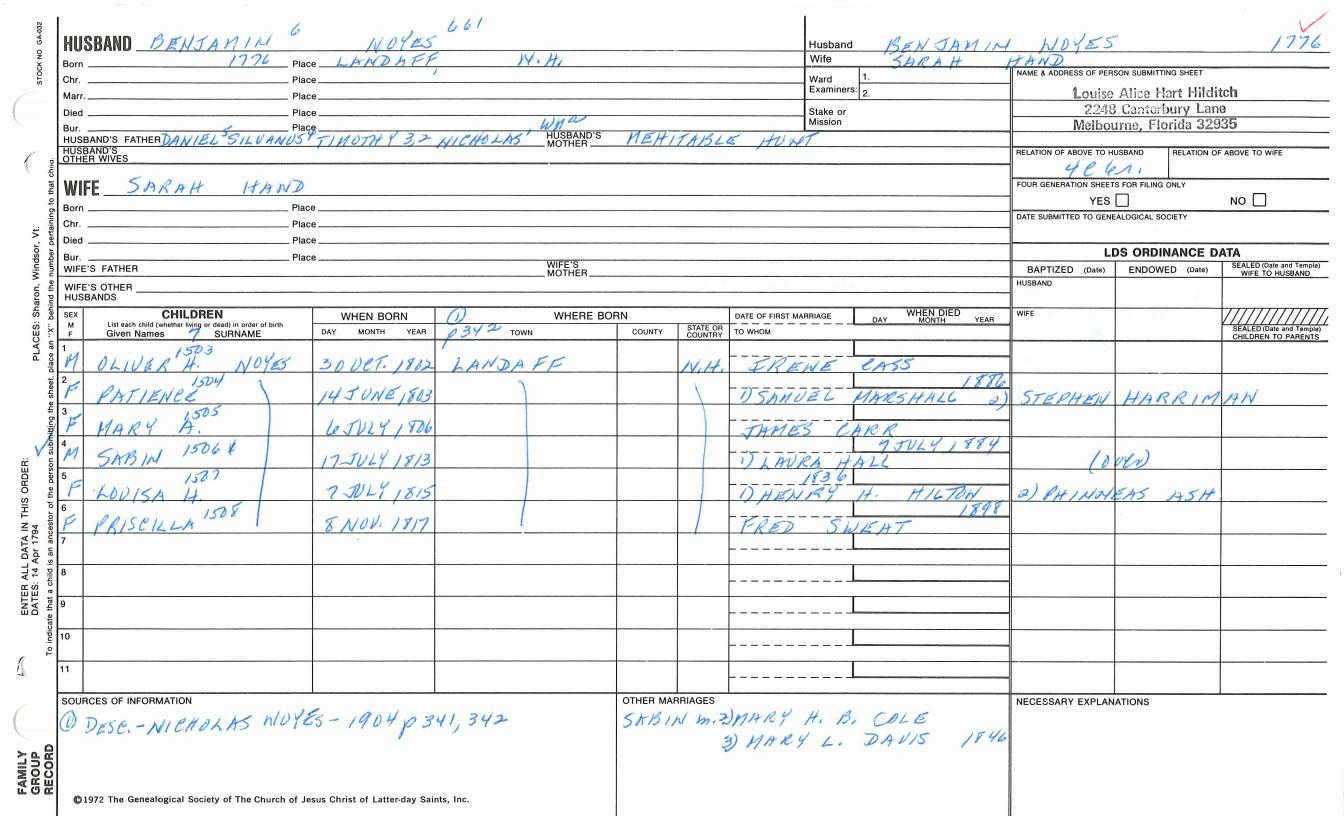 STOCK NO GA-032
HUSBAND BENJAMIN 6 NOYES 661
Born 1776 Place LANDAFF, N.H.
Chr. Place
Marr. Place
Died Place
Bur. Place
HUSBAND'S FATHER DANIEL 5 SILVANUS 4 TIMOTHY 3,2 NICHOLAS 1 HUSBAND'S MOTHER MEHITABLE HUNT
HUSBAND'S OTHER WIVES
Husband BENJAMIN NOYES 1776
Wife SARAH HAND
Ward Examiners: 1.
2.
Stake or Mission
NAME & ADDRESS OF PERSON SUBMITTING SHEET
Louise Alice Hart Hilditch
2248 Canterbury Lane
Melbourne, Florida 32935
RELATION OF ABOVE TO HUSBAND RELATION OF ABOVE TO WIFE
FOUR GENERATION SHEETS FOR FILING ONLY
YES NO
DATE SUBMITTED TO GENEALOGICAL SOCIETY
WIFE SARAH HAND
Born Place
Chr. Place
Died Place
Bur. Place
WIFE'S FATHER WIFE'S MOTHER
WIFE'S OTHER HUSBANDS
LDS ORDINANCE DATA
BAPTIZED (Date) ENDOWED (Date) SEALED (Date and Temple) WIFE TO HUSBAND
HUSBAND
WIFE
SEALED (Date and Temple) CHILDREN TO PARENTS
SEX M F
CHILDREN
List each child (whether living or dead) in order of birth
Given Names 7 SURNAME
WHEN BORN
DAY MONTH YEAR
① p342
WHERE BORN
TOWN COUNTY STATE OR COUNTRY
DATE OF FIRST MARRIAGE
TO WHOM
WHEN DIED
DAY MONTH YEAR
1 M OLIVER H. 1503 NOYES 30 OCT. 1802 LANDAFF N.H. IRENE CASS
2 F PATIENCE 1504 14 JUNE 1803 1886 1) SAMUEL MARSHALL 2) STEPHEN HARRIMAN
3 F MARY A. 1505 6 JULY 1806 JAMES CARR
4 M SABIN 1506 17 JULY 1813 7 JULY 1884 1) LAURA HALL (OVER)
5 F LOUISA H. 1507 7 JULY 1815 1836 1) HENRY H. HILTON 2) PHINNEAS ASH
6 F PRISCILLA 1508 8 NOV. 1817 1898 FRED SWEAT
7
8
9
10
11
SOURCES OF INFORMATION
① DESC.-NICHOLAS NOYES-1904 p 341, 342
OTHER MARRIAGES
SABIN m. 2) MARY H. B. COLE
3) MARY L. DAVIS 1846
NECESSARY EXPLANATIONS
©1972 The Genealogical Society of The Church of Jesus Christ of Latter-day Saints, Inc.
FAMILY GROUP RECORD
ENTER ALL DATA IN THIS ORDER:
DATES: 14 Apr 1794
PLACES: Sharon, Windsor, Vt.
To indicate that a child is an ancestor of the person submitting the sheet, place an "X" behind the number pertaining to that child.